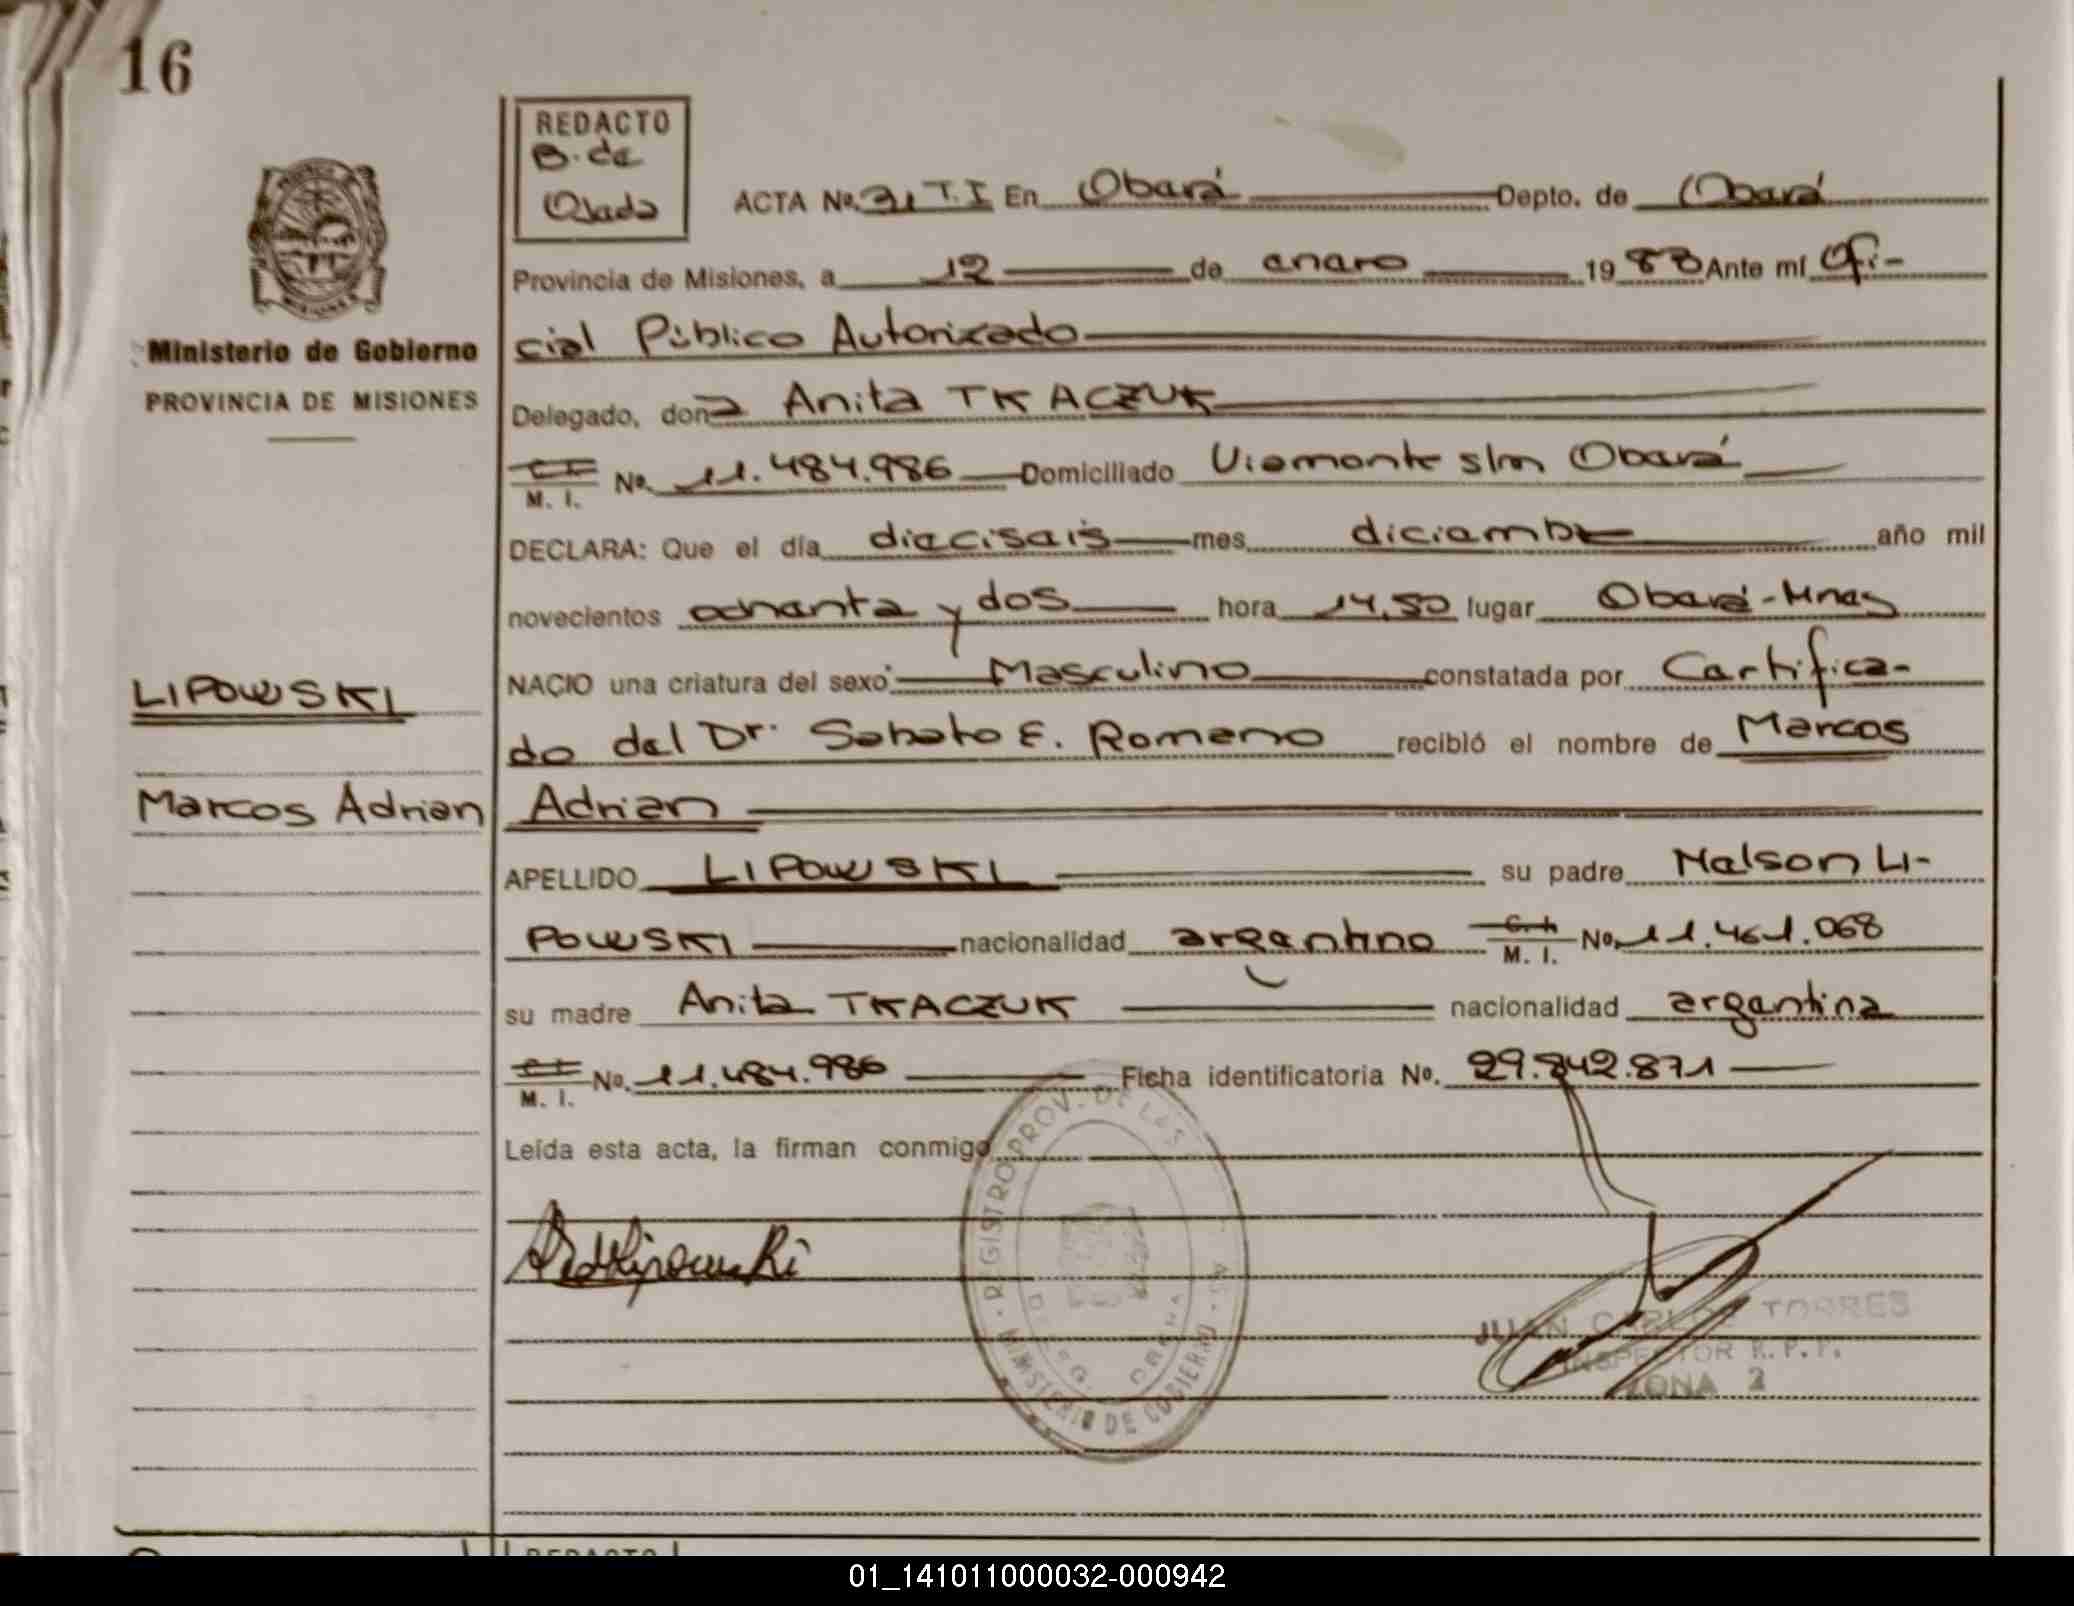 16
REDACTO
B. de
Ojeda
ACTA No. 31 T.I En Oberá Depto. de Oberá
Provincia de Misiones, a 12 de enero 1983 Ante mí Ofi-
cial Público Autorizado
Ministerio de Gobierno
PROVINCIA DE MISIONES
Delegado, doña Anita TKACZUK
C. I.
M. I. No. 11.484.986 Domiciliado Viamonte s/n Oberá
DECLARA: Que el día dieciseis mes diciembre año mil
novecientos ochenta y dos hora 14,50 lugar Oberá-Mnes
NACIO una criatura del sexo Masculino constatada por Certifica-
do del Dr. Sabato E. Romano recibió el nombre de Marcos
LIPOWSKI
Marcos Adrian
Adrian
APELLIDO LIPOWSKI su padre Nelson LI-
POWSKI nacionalidad argentino M. I. No. 11.461.068
su madre Anita TKACZUK nacionalidad argentina
C. I.
M. I. No. 11.484.986 Ficha identificatoria No. 29.842.871
Leída esta acta, la firman conmigo
REGISTRO PROV. DE LAS
MINISTERIO DE GOBIERNO
DELEG. OBERA
JUAN CARLOS TORRES
INSPECTOR R.P.P.
ZONA 2
REDACTO
01_141011000032-000942